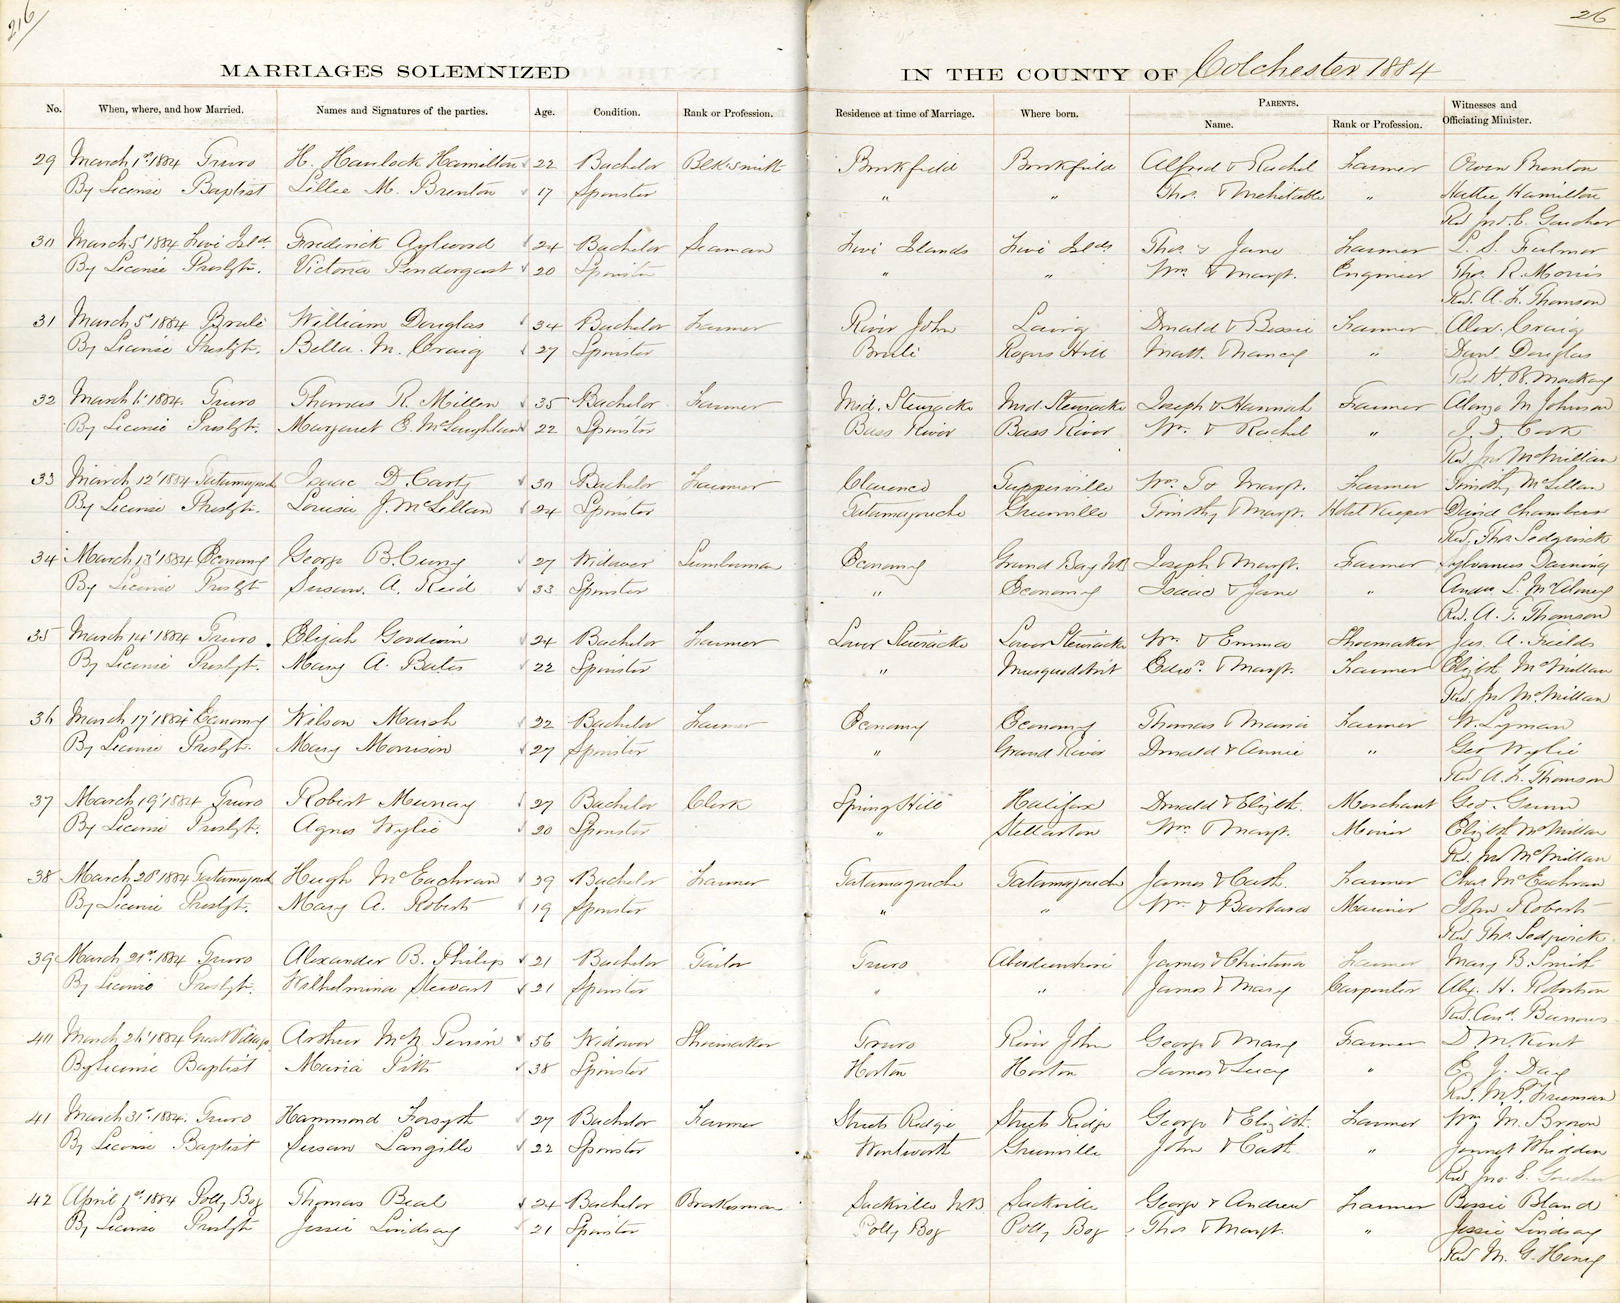 216
26
MARRIAGES SOLEMNIZED IN THE COUNTY OF Colchester 1884
No. When, where, and how Married. Names and Signatures of the parties. Age. Condition. Rank or Profession. Residence at time of Marriage. Where born. PARENTS. Name. Rank or Profession. Witnesses and Officiating Minister.
29 March 1st 1884 Truro H. Havelock Hamilton 22 Bachelor Blksmith Brookfield Brookfield Alfred & Rachel Farmer Owen Brenton
By License Baptist Lillie M. Brenton 17 Spinster " " Thos. & Mehitable " Hattie Hamilton
Rev Jno. E. Goucher
30 March 5' 1884 Five Isl'ds. Frederick Aylward 24 Bachelor Seaman Five Islands Five Islds Thos & Jane Farmer L. S. Fulmer
By License Presbyt. Victoria Pendergast 20 Spinster " " Wm & Margt. Engineer Thos. R. Morris
Rev. A. F. Thomson
31 March 5' 1884 Brule William Douglas 34 Bachelor Farmer River John Lairg Donald & Bessie Farmer Alex. Craig
By License Presbyt. Bella M. Craig 27 Spinster Brule Rogers Hill Matt. & Nancy " Danl. Douglas
Rev. H. B. Mackay
32 March 6' 1884. Truro Thomas R. Miller 35 Bachelor Farmer Mid. Stewiacke Mid. Stewiacke Joseph & Hannah Farmer Alonzo M Johnson
By License Presbyt. Margaret E. McLaughlan 22 Spinster Bass River Bass River Wm. & Rachel " J. D. Cook
Rev Jno McMillan
33 March 12' 1884 Tatamagouche Isaac D. Carty 30 Bachelor Farmer Clarence Tupperville Wm. T & Margt. Farmer Timothy McLellan
By License Presbyt. Louisa J. McLellan 24 Spinster Tatamagouche Greenville Timothy & Margt. Hotel Keeper David Chambers
Rev. Thos Sedgwick
34 March 13' 1884 Economy George B. Cuny 27 Widower Lumberman Economy Grand Bay NB Joseph & Margt. Farmer Sylvanus Downing
By License Presbyt Susan. A. Reid 33 Spinster " Economy Isaac & Jane " Andw L. McAloney
Rev. A. F. Thomson
35 March 14' 1884 Truro Elijah Goodwin 24 Bachelor Farmer Lower Stewiacke Lower Stewiacke Wm & Emma Shoemaker Jas. A. Fields
By License Presbyt. Mary A. Bates 22 Spinster " Musquodobit Edwd. & Margt. Farmer Elizbth McMillan
Rev Jno McMillan
36 March 17' 1884 Economy Wilson Marsh 22 Bachelor Farmer Economy Economy Thomas & Maria Farmer W. Lyman
By License Presbyt. Mary Morrison 27 Spinster " Grand River Donald & Annie " Geo Wylie
Rev A. F. Thomson
37 March 19' 1884 Truro Robert Murray 27 Bachelor Clerk Spring Hill Halifax Donald & Elizbth. Merchant Geo. Gunn
By License Presbyt. Agnes Wylie 20 Spinster " Stellarton Wm. & Margt. Miner Elizbth McMillan
Rev. Jno McMillan
38 March 20' 1884 Tatamagouche Hugh McEachran 39 Bachelor Farmer Tatamagouche Tatamagouche James & Cath. Farmer Chas McEachran
By License Presbyt. Mary A. Roberts 19 Spinster " " Wm & Barbara Mariner John Roberts
Rev Thos. Sedgwick
39 March 21st 1884 Truro Alexander B. Philip 21 Bachelor Tailor Truro Aberdeenshire James & Christina Farmer Mary B. Smith
By License Presbyt. Wilhelmina Stewart 21 Spinster " " James & Mary Carpenter Alex. H. Robertson
Rev. And. Burrows
40 March 26' 1884 Great Village Arthur McN Perrin 56 Widower Shoemaker Truro River John George & Mary Farmer D. M. Kent
By License Baptist Maria Pitts 38 Spinster Horton Horton James & Lucy " E. J. Day
Rev. M. P. Freeman
41 March 31st 1884. Truro Hammond Forsyth 27 Bachelor Farmer Streets Ridge Streets Ridge George & Elizbth. Farmer Wm M. Brown
By License Baptist Susan Langille 22 Spinster Wentworth Greenville John & Cath " Jennet Whidden
Rev Jno. E. Goucher
42 April 1st 1884 Polly Bog Thomas Beal 24 Bachelor Brakesman Sackville N.B. Sackville George & Andrew Farmer Bessie Bland
By License Presbyt Jessie Lindsay 21 Spinster Polly Bog Polly Bog Thos & Margt. " Jessie Lindsay
Rev M. G. Henry